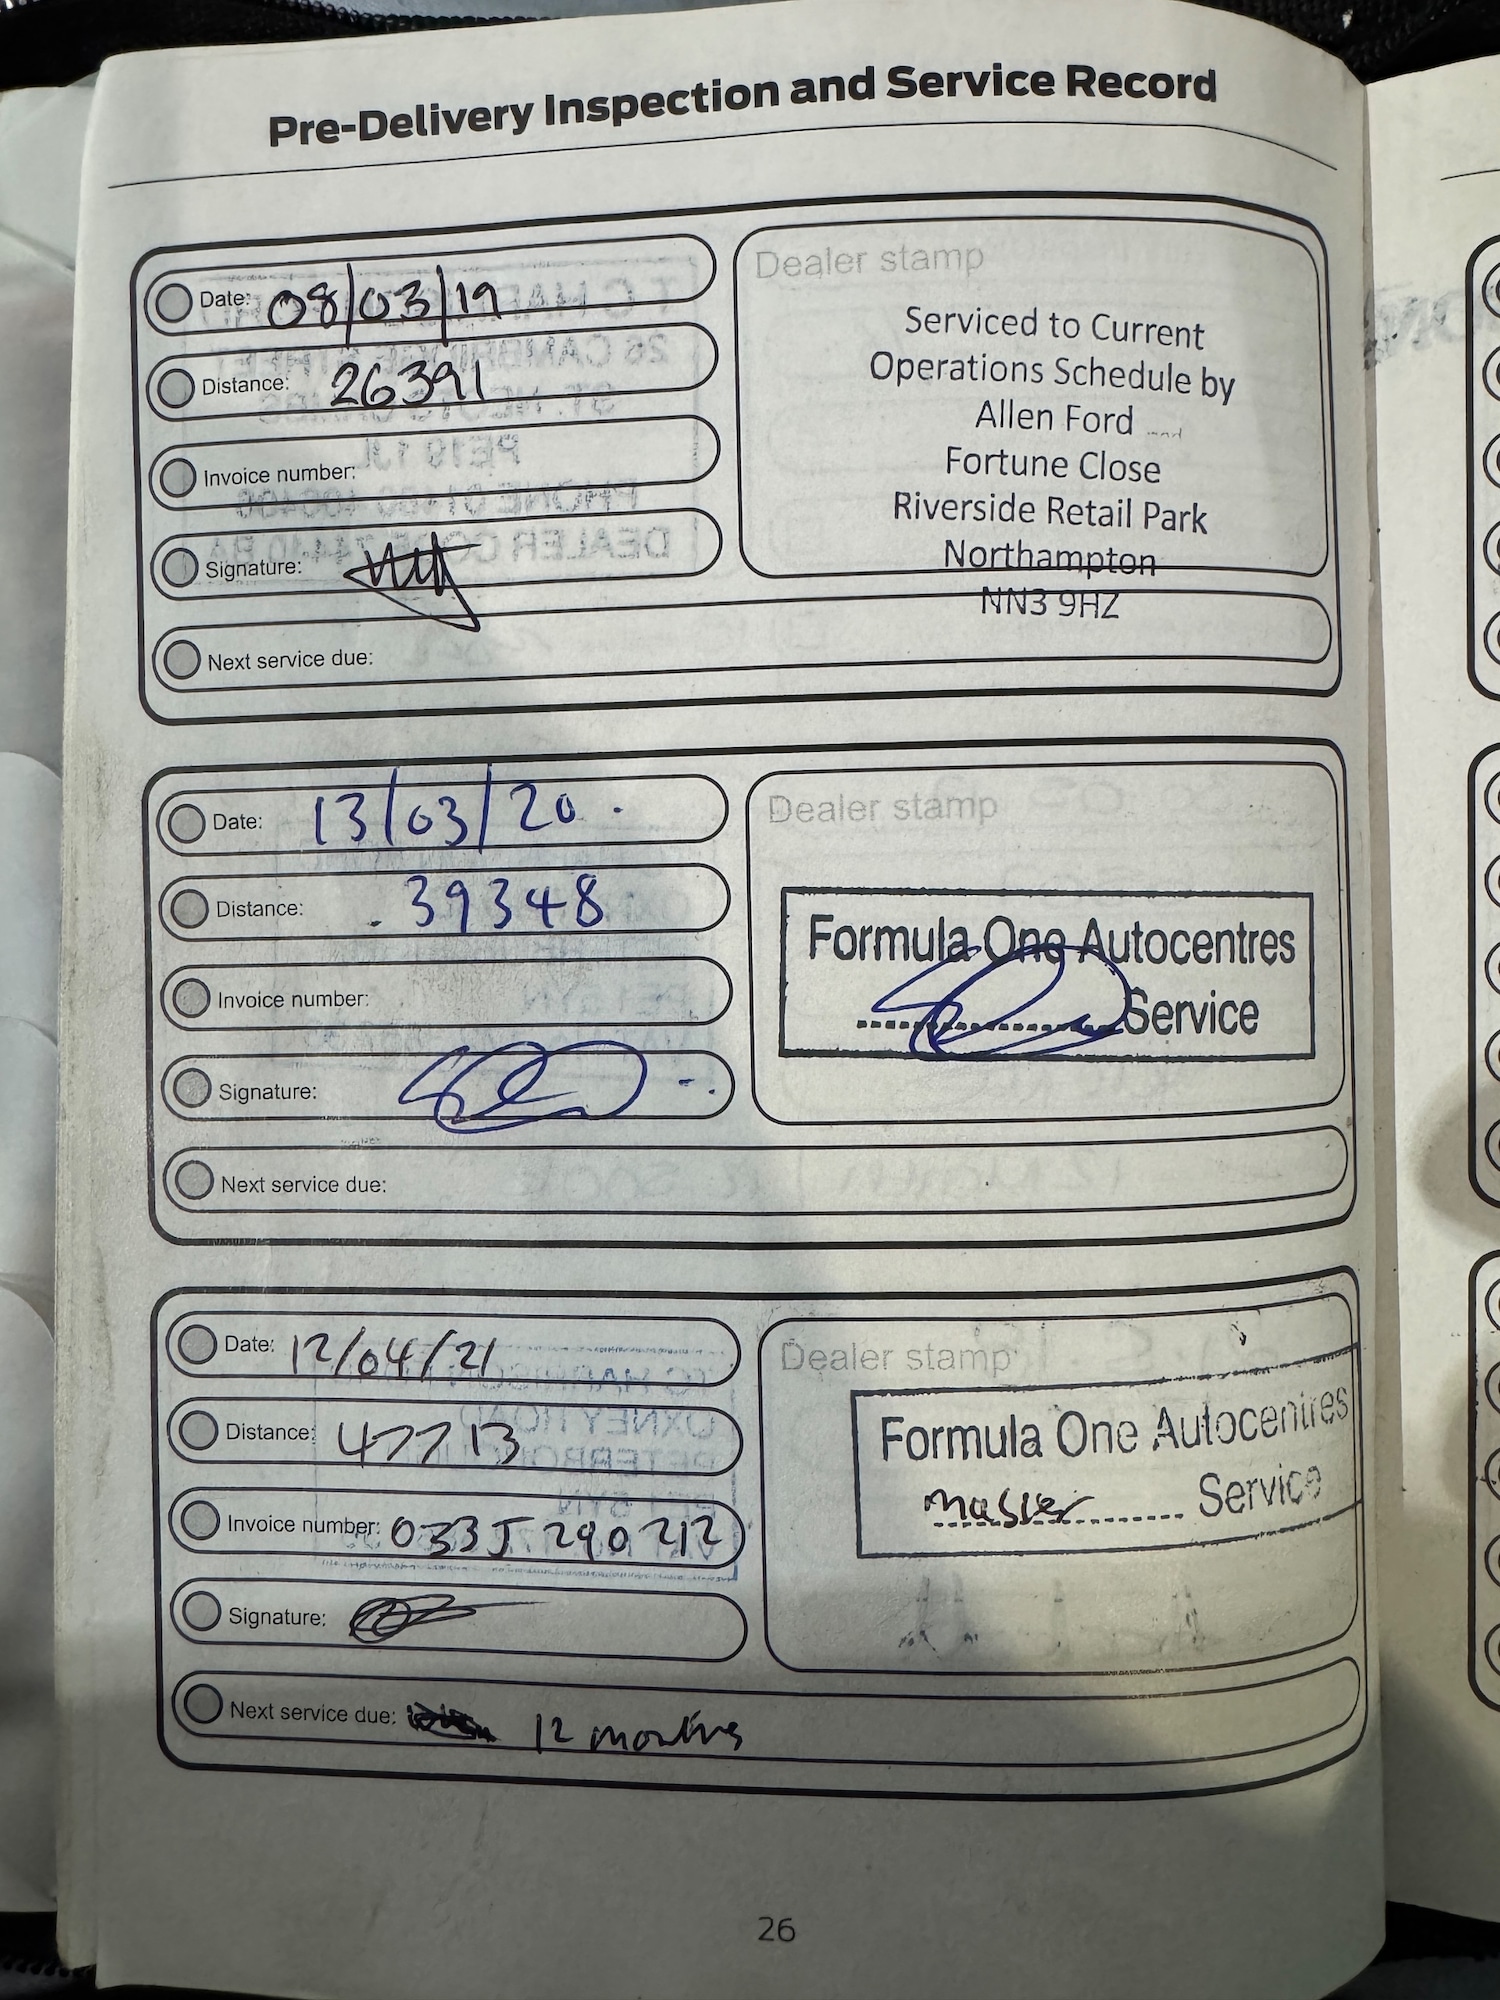 Pre-Delivery Inspection and Service Record
Date: 08/03/19
Distance: 26391
Invoice number:
Signature:
Next service due:
Dealer stamp
Serviced to Current
Operations Schedule by
Allen Ford
Fortune Close
Riverside Retail Park
Northampton
NN3 9HZ
Date: 13/03/20
Distance: 39348
Invoice number:
Signature:
Next service due:
Dealer stamp
Formula One Autocentres
Service
Date: 12/04/21
Distance: 47713
Invoice number: 033J290212
Signature:
Next service due: 12 months
Dealer stamp
Formula One Autocentres
master Service
26